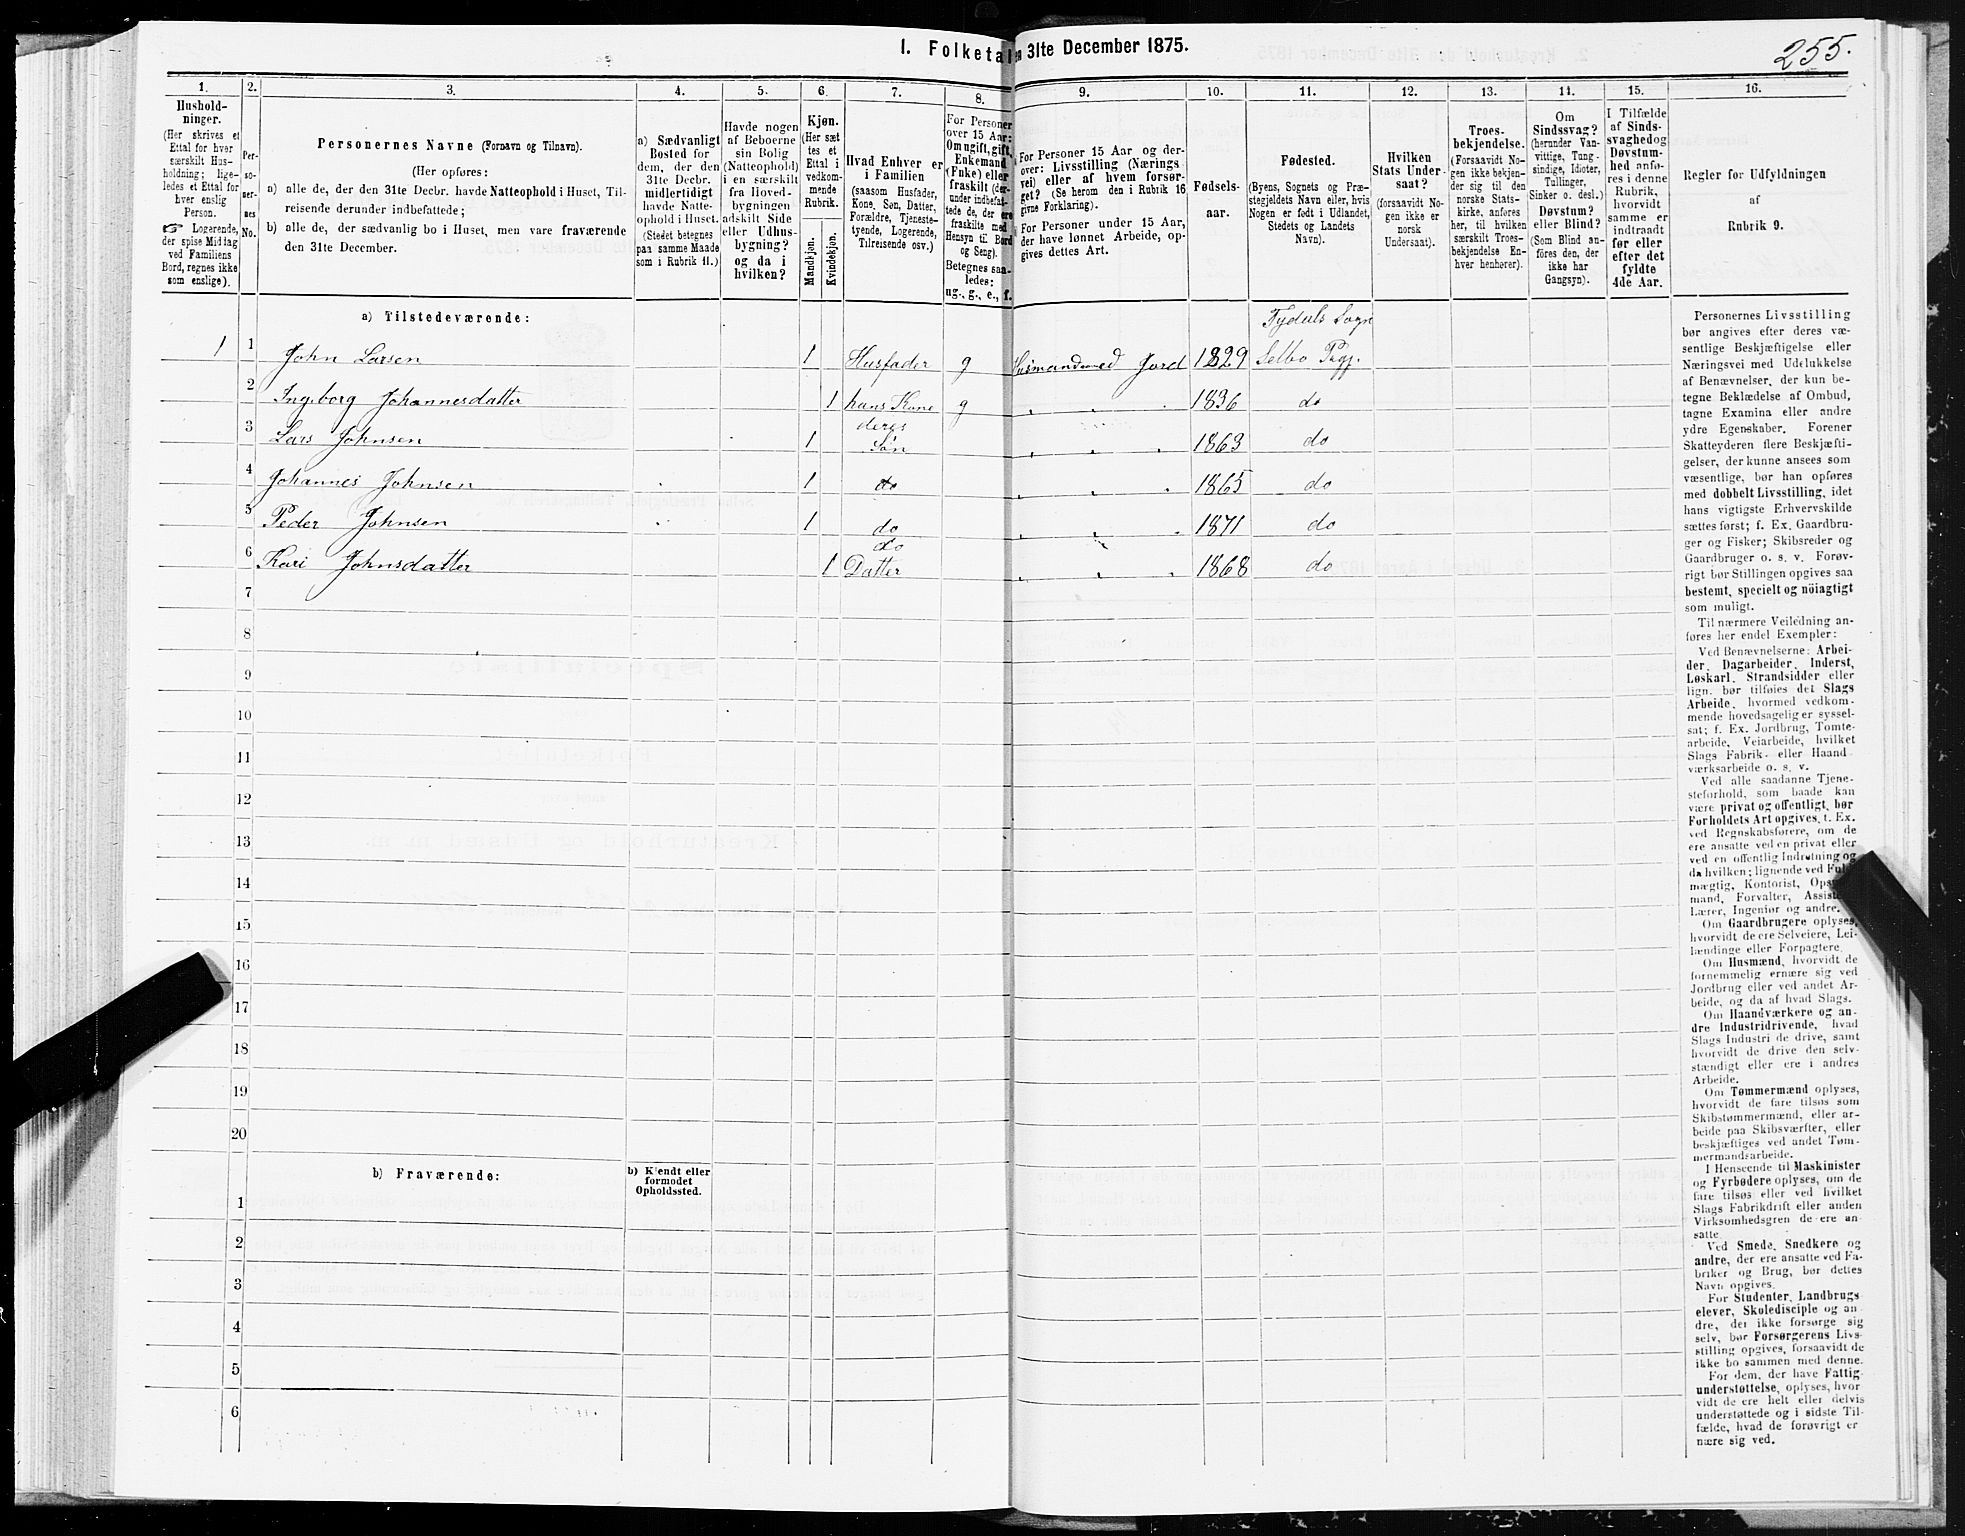 I. Folketal
en 31te December 1875.
255.
1.
2.
3.
4.
5.
6.
7.
8.
9.
10.
11.
12.
13.
14.
15.
16.
Hushold-
ninger.
(Her skrives et
Ettal for hver
særskilt Hus-
holdning; lige-
ledes et Ettal for
hver enslig
Person.
☞ Logerende,
der spise Middag
ved Familiens
Bord, regnes ikke
som enslige).
Per-
so-
ner-
nes
No.
Personernes Navne (Fornavn og Tilnavn).
(Her opføres:
a) alle de, der den 31te Decbr. havde Natteophold i Huset, Til-
reisende derunder indbefattede;
b) alle de, der sædvanlig bo i Huset, men vare fraværende
den 31te December.
a) Sædvanligt
Bosted for
dem, der den
31te Decbr.
midlertidigt
havde Natte-
ophold i Huset.
(Stedet betegnes
paa samme Maade
som i Rubrik 11.)
Havde nogen
af Beboerne
sin Bolig
(Natteophold)
i en særskilt
fra Hoved-
bygningen
adskilt Side
eller Udhus-
bygning?
og da i
hvilken?
Kjøn.
(Her sæt-
tes et
Ettal i
vedkom-
mende
Rubrik.
Mandkjøn.
Kvindekjøn.
Hvad Enhver er
i Familien
(saasom Husfader,
Kone, Søn, Datter,
Forældre, Tjeneste-
tyende, Logerende,
Tilreisende osv.)
For Personer
over 15 Aar:
Om ugift, gift,
Enkemand
(Enke) eller
fraskilt (der-
under indbefat-
tede de, der ere
fraskilte med
Hensyn til Bord
og Seng).
Betegnes saa-
ledes:
ug., g., e., f.
For Personer 15 Aar og der-
over: Livsstilling (Nærings
vei) eller af hvem forsør-
get? (Se herom den i Rubrik 16
givne Forklaring).
For Personer under 15 Aar,
der have lønnet Arbeide, op-
gives dettes Art.
Fødsels-
aar.
Fødested.
(Byens, Sognets og Præ-
stegjeldets Navn eller, hvis
Nogen er født i Udlandet,
Stedets og Landets
Navn).
Hvilken
Stats Under-
saat?
(forsaavidt No-
gen ikke er
norsk
Undersaat).
Troes-
bekjendelse.
(Forsaavidt No-
gen ikke bekjen-
der sig til den
norske Stats-
kirke, anføres
her, til hvilken
særskilt Troes-
bekjendelse En-
hver henhører).
Om
Sindssvag?
(herunder Van-
vittige, Tung-
sindige, Idioter,
Tullinger,
Sinker o. desl.)
Døvstum?
eller Blind?
(Som Blind an-
føres den, der
ikke har
Gangsyn).
I Tilfælde
af Sinds-
svaghed og
Døvstum-
hed anfø-
res i denne
Rubrik,
hvorvidt
samme er
indtraadt
før eller
efter det
fyldte
4de Aar.
Regler for Udfyldningen
af
Rubrik 9.
a) Tilstedeværende:
Tydals Sogn
1 1 John Larsen 1 Husfader g Husmand med Jord 1829 Selbo Pgj.
2 Ingeborg Johannesdatter 1 hans Kone g " " " 1836 do
deres
3 Lars Johnsen 1 Søn " " " 1863 do
4 Johannes Johnsen 1 do " " " 1865 do
5 Peder Johnsen 1 do " " " 1871 do
do
6 Kari Johnsdatter 1 Datter " " " 1868 do
7
8
9
10
11
12
13
14
15
16
17
18
19
20
b) Fraværende:
b) Kjendt eller
formodet
Opholdssted.
1
2
3
4
5
6
Personernes Livsstilling
bør angives efter deres væ-
sentlige Beskjæftigelse eller
Næringsvei med Udelukkelse
af Benævnelser, der kun be-
tegne Beklædelse af Ombud,
tagne Examina eller andre
ydre Egenskaber. Forener
Skatteyderen flere Beskjæfti-
gelser, der kunne ansees som
væsentlige, bør han opføres
med dobbelt Livsstilling, idet
hans vigtigste Erhvervskilde
sættes først; f. Ex. Gaardbru-
ger og Fisker; Skibsreder og
Gaardbruger o. s. v. Forøv-
rigt bør Stillingen opgives saa
bestemt, specielt og nöiagtigt
som muligt.
Til nærmere Veiledning an-
føres her endel Exempler:
Ved Benævnelserne: Arbei-
der, Dagarbeider, Inderst,
Løskarl, Strandsidder eller
lign. bør tilføies det Slags
Arbeide, hvormed vedkom-
mende hovedsagelig er syssel-
sat; f. Ex. Jordbrug, Tomte-
arbeide, Veiarbeide, hvilket
Slags Fabrik- eller Haand-
værksarbeide o. s. v.
Ved alle saadanne Tjene-
steforhold, som baade kan
være privat og offentligt, bør
Forholdets Art opgives, f. Ex.
ved Regnskabsførere, om de
ere ansatte ved en privat eller
ved en offentlig Indretning og
da hvilken; lignende ved Ful
mægtig, Kontorist, Ops
mand, Forvalter, Assist
Lærer, Ingeniør og andre.
Om Gaardbrugere oplyses,
hvorvidt de ere Selveiere, Lei-
lændinge eller Forpagtere.
Om Husmænd, hvorvidt de
fornemmelig ernære sig ved
Jordbrug eller ved andet Ar-
beide, og da af hvad Slags.
Om Haandværkere og an-
dre Industridrivende, hvad
Slags Industri de drive, samt
hvorvidt de drive den selv-
stændigt eller ere i andres
Arbeide.
Om Tømmermænd oplyses,
hvorvidt de fare tilsøs som
Skibstømmermænd, eller ar-
beide paa Skibsværfter, eller
beskjæftiges ved andet Tøm-
mermandsarbeide.
I Henseende til Maskinister
og Fyrbødere oplyses, om de
fare tilsøs eller ved hvilket
Slags Fabrikdrift eller anden
Virksomhedsgren de ere an-
satte.
Ved Smede, Snedkere og
andre, der ere ansatte ved Fa-
briker og Brug, bør dettes
Navn opgives.
For Studenter, Landbrugs
elever, Skoledisciple og an
dre, der ikke forsørge sig
selv, bør Forsørgerens Livs-
stilling opgives, forsaavidt de
ikke bo sammen med denne.
For dem, der have Fattig
understøttelse, oplyses, hvor
vidt de ere helt eller delvis
understøttede og i sidste Til-
fælde, hvad de forøvrigt er
nære sig ved.